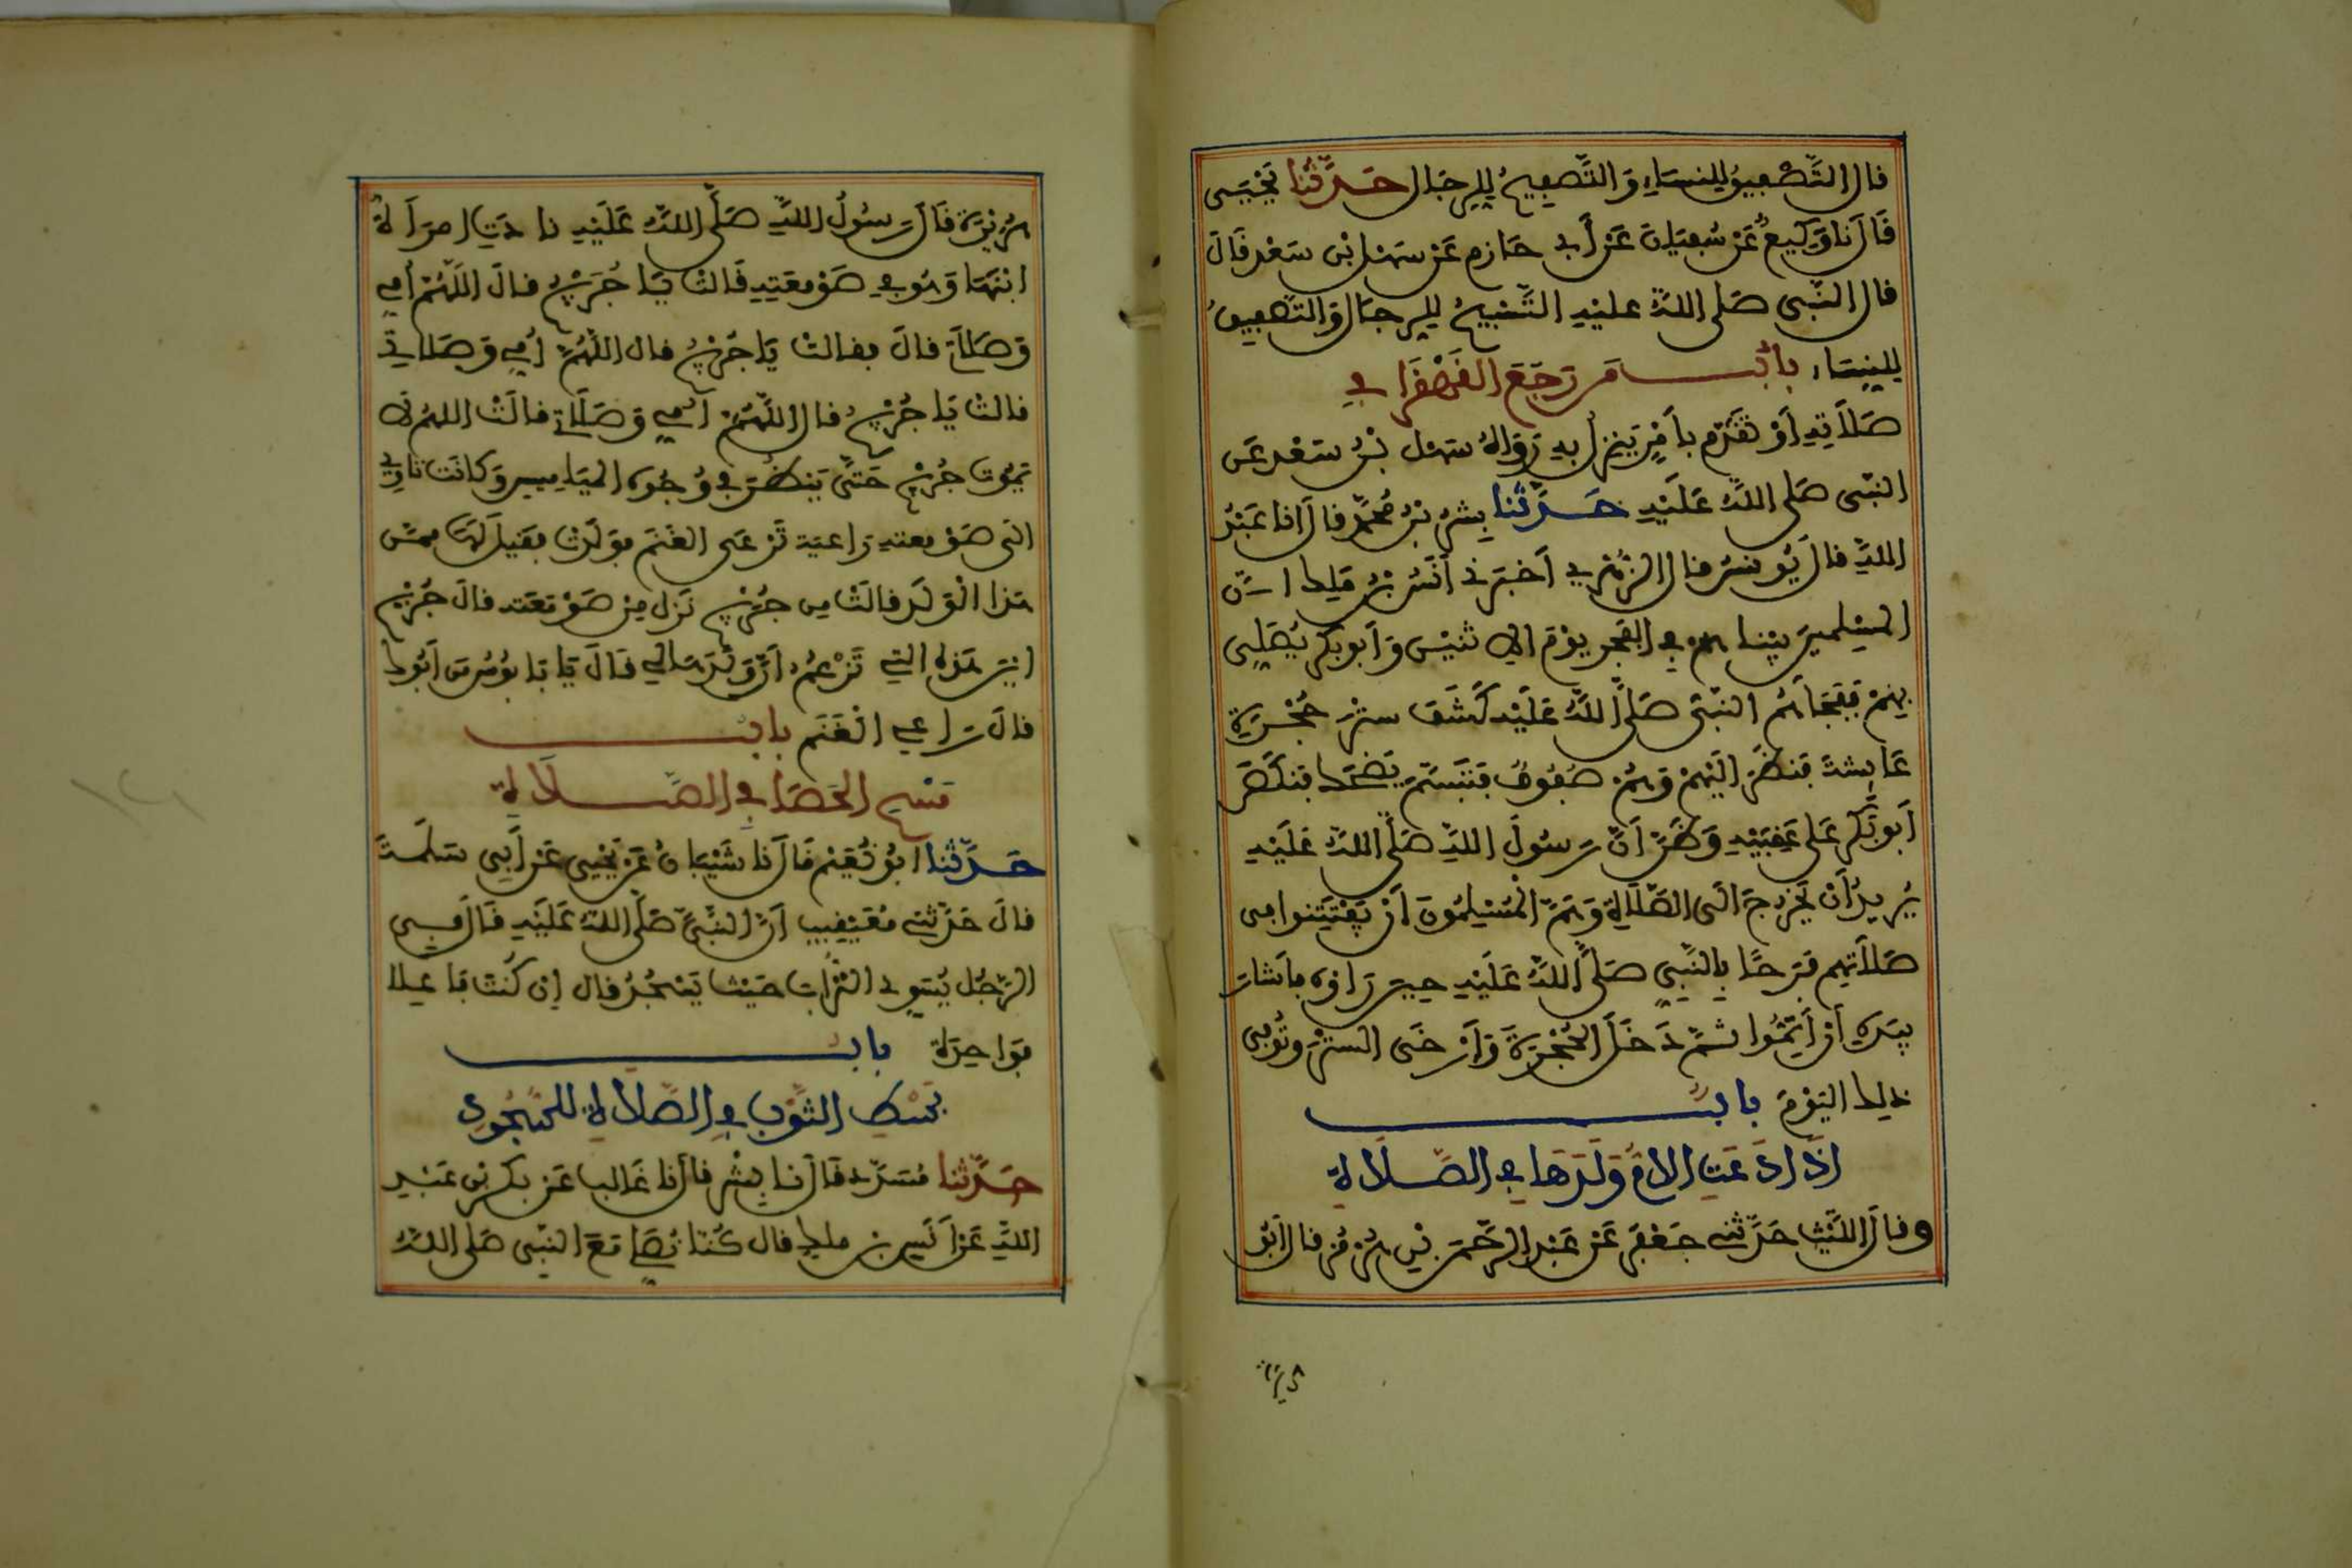 قال التَّصْفِيقُ للِنسَاءِ وَالتَّصفِيحُ لِلرجَال حَدَّثنَا يَحْيَى
قَالَ نَا وَكِيعٌ عَنْ سُفيَانَ عَنْ أَبِي حَازِمٍ عَنْ سَهْل بْنِ سَعْدٍ قَالَ
قال النَّبى صَلى اللهُ عليْهِ التَّسْبِيحُ لِلرجَالِ وَالتَّصفِيقُ
لِلنِسَاءِ بَابُ مَن رَجَعَ القَهْقَرَا فِي
صَلاَتِهِ أَوْ تقَدَّم بأَمْرٍ يَنزلُ بِهِ رَوَاهُ سَهْل بْنُ سَعْدٍ عَن
النبّى صَلى اللهُ عَلَيْهِ حَدَّثَنَا بِشْرُ بْنُ مُحَمَّدٍ قال أنا عَبْدُ
اللهِ قالَ يُونسُ قال الزُّهْرِي أَخبَرَنِي أَنَسُ بْنُ مَلِكٍ أَنّ
المسْلِمينَ بيْنا هُمْ فِي الفَجْر يوْمَ الاِثنيْن وَأَبو بَكْرٍ يُصَلِّى
بِهِمْ فَفَجَأَهُم النبّى صَلى اللهُ عَلَيْهِ كَشَفَ ستْرَ حُجْرَةِ
عَايشةَ فنظَرَ إِلَيْهِمْ وَهُمْ صُفُوفٌ فتَبَسَّمَ يَضحَك فنكَصَ
أَبو بَكْرٍ عَلى عَقِبَيْهِ وَظَنَّ أَنَّ رَسُولَ اللهِ صَلى اللهُ عَلَيْهِ
يُرِيدُ أَنْ يَخْرجَ الَى الصَّلاَةِ وَهَمَّ المُسْلِمُونَ أَنْ يَفْتَتِنوا فى
صَلاَتِهِم فَرَحًا بِالنَّبِي صَلى اللهُ عَلَيْهِ حِينَ رَأَوْهُ فأَشارَ
بِيَدِهِ أَنْ أَتِمُّوا ثمَّ دَخَلَ الحُجْرَةَ وَأَرْخَى السّتْرَ وتُوُفِّى
ذلِك اليَوْمَ بابُ
إذَا دَعَتِ الاُمُّ وَلَدَهَا فِي الصَّلاَةِ
وقالَ اللَّيْث حَدَّثنِي جَعْفَر عَنْ عَبْدِ الرَّحْمَن بْنِ هُرْمُز قال أَبو
هُرَيْرَة قَالَ رَسُولُ اللهِ صَلَّى اللهُ عَلَيْهِ نادَتِ امرَأَةٌ
ابْنَهَا وَهُوَ فِي صَوْمَعَتِهِ قَالتْ يَا جُرَيْجُ قالَ اللّهُمَّ أُمِي
وَصَلاَتِي قالَ فقالتْ يَا جُرَيْجُ قال اللّهُمَّ أُمِي وَصَلاتي
قالت يَا جُرَيْجُ قال اللَّهُمَّ أُمِي وَصَلاَتِي قالَتْ اللهُمَّ لا
يَمُوت جُرَيْج حَتَّى يَنظُرَ فِي وُجُوه المَيَامِيسِ وَكانَتْ تاوِى
الَى صَوْمعتِهِ رَاعيَة تَرْعَى الغَنَم فوَلَدَتْ فقيلَ لَهَا ممَّن
هَذا الْوَلَد قالَتْ مِن جُرَيْجٍ نَزَل مِنْ صَوْمَعَتِهِ قالَ جُرَيْج
أيْنَ هَذِهِ التِي تَزْعُمُ أَنَّ وَلَدَهَا لِي قَالَ يَا بَابُوسُ مَن أَبُوك
قالَ رَاعِي الْغَنَم بابُ
مَسْحِ الحَصَا فِي الصَّلاَةِ
حَدَّثنا أبُو نُعَيْم قَالَ نا شَيْبَانُ عَن يَحْيَى عَنْ أَبِي سَلَمَةَ
قالَ حَدَّثنِي مُعَيْقِيبٌ أَنَّ النَّبيَّ صَلَّى اللهُ عَلَيْهِ قَالَ فِى
الرَّجُل يُسَوِي التُّرَابَ حَيْث يَسْجُدُ قال إن كُنْتَ فَاعِلا
فوَاحِدَة بابُ
بَسْطِ الثَّوْبِ فِي الصَّلاَةِ للسُّجُودِ
حَدَّثنَا مُسَدَّد قَالَ نَا بِشْر قالَ نا غَالب عَن بَكر بن عَبْدِ
اللهِ عَنْ أَنَسِ بن ملِك قال كُنّا نُصَلِّي مَعَ النبّى صَلى اللهُ